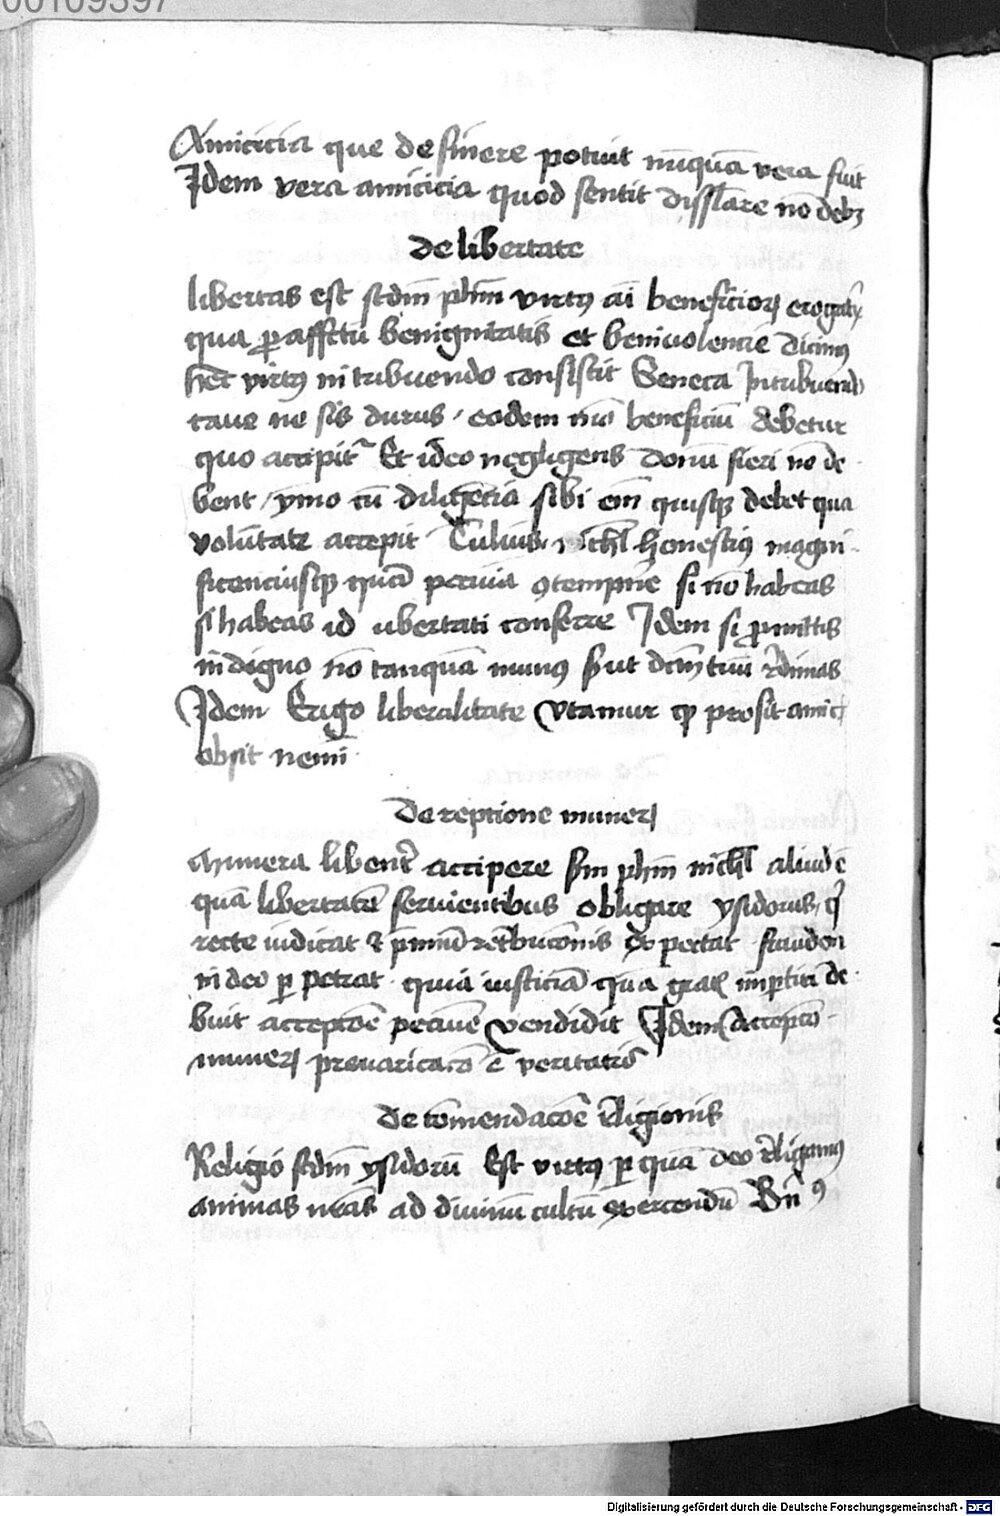 00109397
Amicicia que desinere potuit nūquā vera fuit
Idem vera amicicia quod sentit dissĩlare nō debꝫ
De libertate
libertas est scdm̄ phm̄ virtꝰ ai beneficioꝝ
qua ꝑ affctū benignitatis et beniuolencie dicimꝰ
hec virtꝰ in tribuendo consistit Seneca In tribuendo
caue ne sis durus / eodem beneficiū debetur
quo accipit Et ideo negligens donū fieri nō de
bent / ymo cū diligēcia sibi em̄ quisqꝫ debet qua
volūtate accepit Tulius nichil honestius magni
ficenciusqꝫ quā si nō habeas
si habeas id libertati conferre Idem si ꝓmittis
indigno nō tanquā munus
Idem Ergo liberalitate vtamur prosit amic
obsit nemi
De repcione muneꝝ
Munera libent̄ accipere scdm̄ phm̄ nichil aliud ē
quā libertatē seruientibus obligare ysidorus / q
recte iudicat ⁊ p̄miū expectat fraudem
in deo ꝑpetrat quia iusticiā quā gratis inꝑtiri de
buit accepcōe pecunie vendidit Idem Accepcō
muneꝝ preuaricacō ē veritatis
De cōmendacōe religionis
Religio scdm̄ ysidorū est virtꝰ ꝑ quā deo religamꝰ
animas nr̄as ad diuinū cultū exercendū
Digitalisierung gefördert durch die Deutsche Forschungsgemeinschaft - DFG